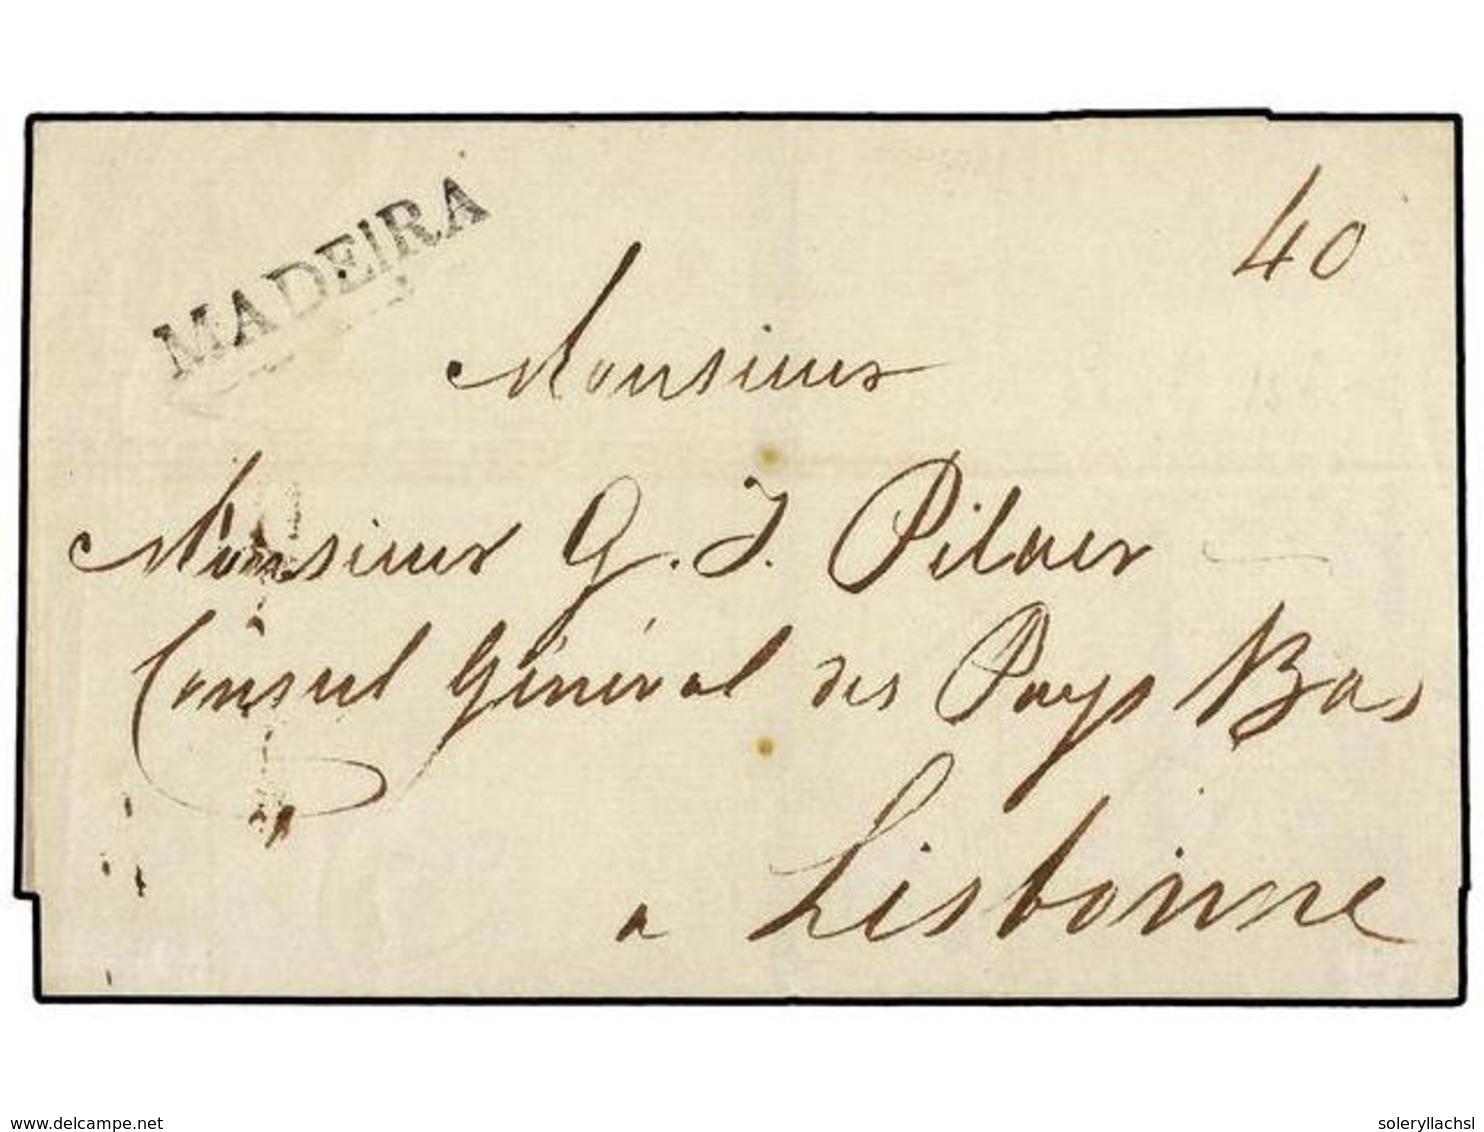 MADEIRA
40
Monsieur
Monsieur G. J. Pilaer
Consul Général des Pays Bas
a Lisbonne
delcampe.net
soleryllachsl